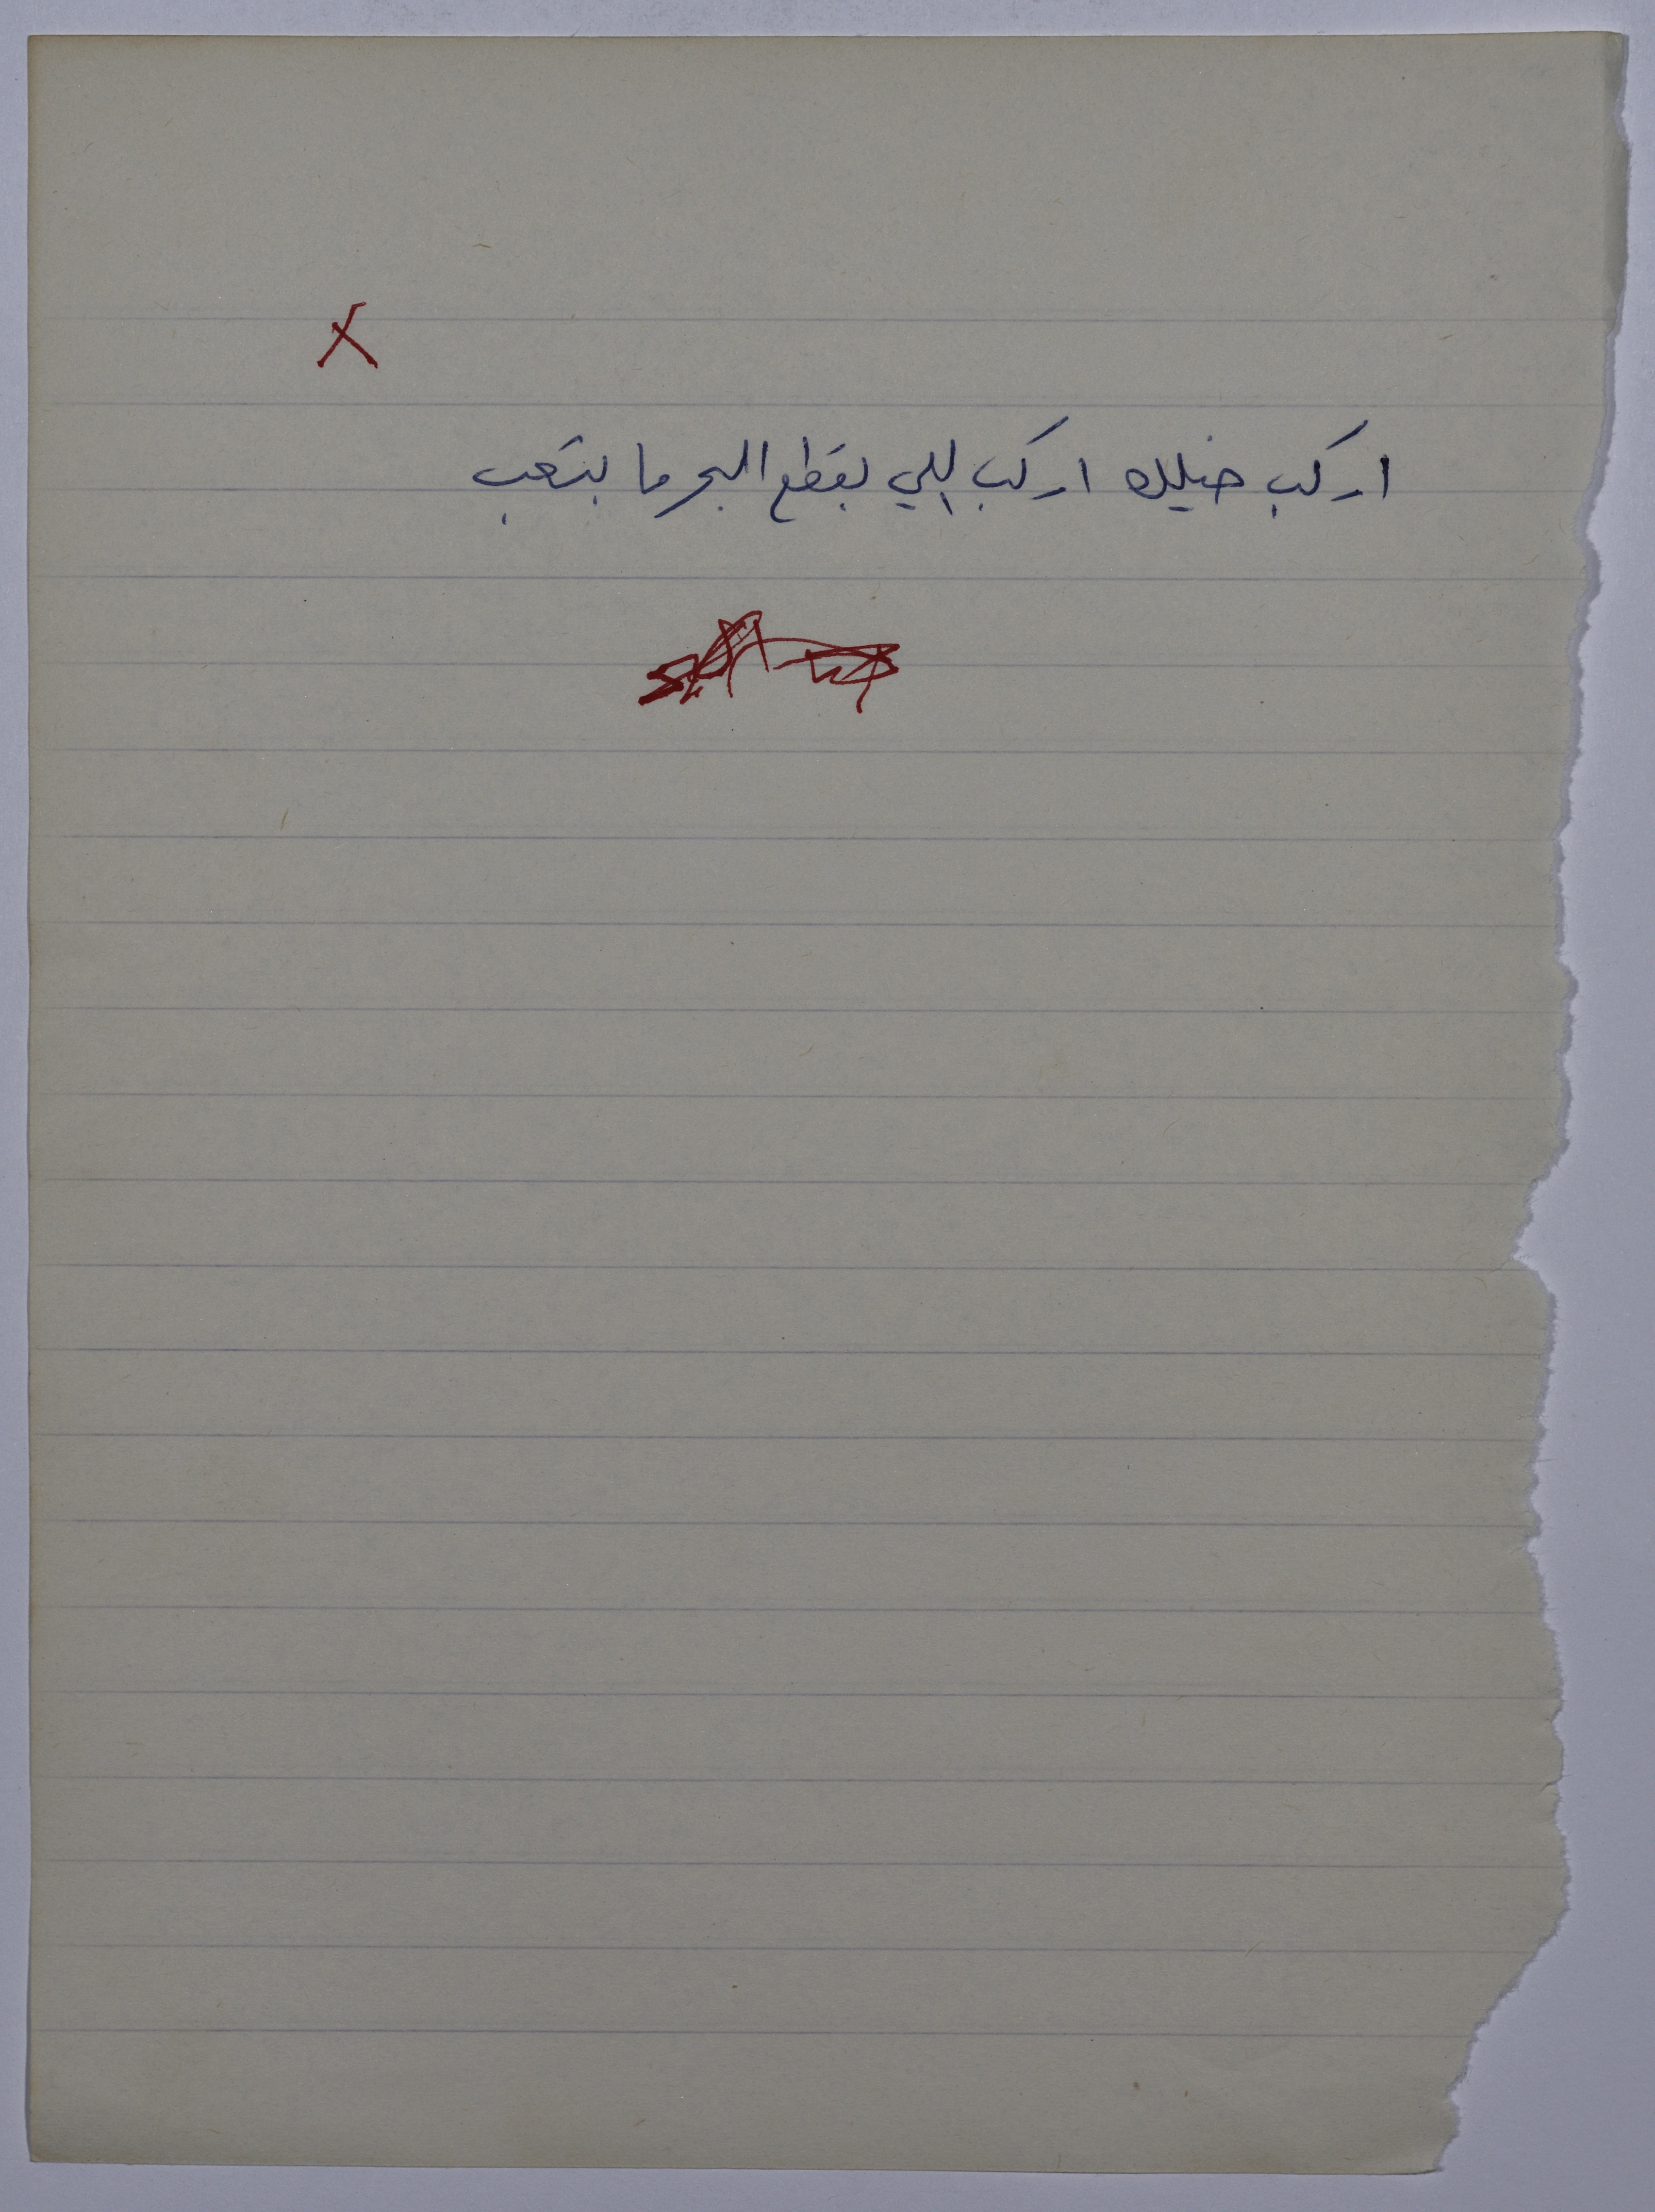 x
اركب خيلك اركب اللي بقطع البحر ما بتعب